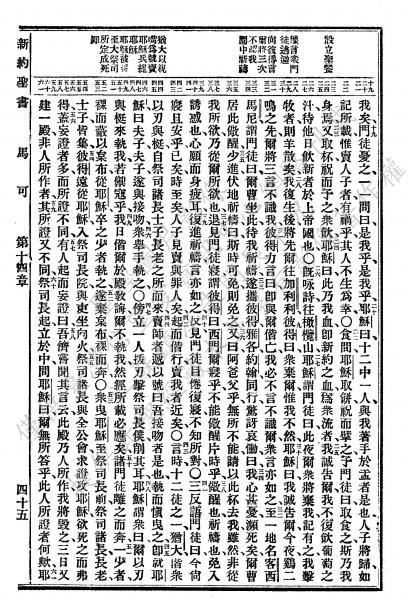 設立聖餐
豫言門
徒逃避
向彼得言
爾將三次
不認我
園中祈禱
猶大以親
嘴爲號賣
耶穌
耶穌被解
至大祭司
所定成死
罪
我矣門徒憂之一一問曰是我乎是我乎耶穌曰十二中一人與我著手於盂者是也人子將歸如
記所載惟賣人子者有禍乎其人不生爲幸〇食間耶穌取餅祝而擘之予門徒曰取食之斯乃我
身焉又取杯祝而予之衆飲耶穌曰此乃我血即新約之血爲衆流者我誠告爾我不復飲葡萄之
汁待他日飲新者於上帝國也〇既咏詩往橄欖山耶穌謂門徒曰此夜爾衆將棄我記有之我擊
牧者則羊散矣我復生後將先爾往加利利彼得曰衆棄爾惟我不然耶穌曰我誠告爾今夜鷄二
鳴之先爾將三言不識我彼得力言曰即與爾偕亡我必不言不識爾衆言亦如之至一地名客西
馬尼謂門徒曰爾曹坐此待我祈禱遂攜彼得雅各約翰同行驚訝哀慟曰我心甚憂瀕死矣爾曹
居此儆醒少進伏地祈禱曰斯時可則免免之又曰阿爸父乎無所不能請以此杯去我雖然非從
我所欲乃從爾所欲也退見門徒寢謂彼得曰西門爾寢乎不能儆醒片時乎儆醒祈禱也免入
誘惑也心願而身疲耳復進祈禱言亦如之反見門徒仍倦復寢不知所對〇三反語門徒曰今尚
寢且安乎已矣時至矣人子見賣與罪人矣起而偕行賣我者近矣〇言時十二徒之一猶大偕衆
以刃與梃自祭司諸長士子長老之所而來賣師者遞以號曰吾接吻者是也執而慎曳之即就耶
穌曰夫子夫子遂與接吻衆舉手執之〇傍立一人拔刃擊祭司長僕削其耳耶穌謂衆曰爾以刃
與梃來執我若禦寇乎我日偕爾於殿教誨爾不我執然經所載必應矣諸門徒離之而奔一少者
裸而蔽以枲布從耶穌卒之少者執之遂棄枲布裸而奔〇衆曳耶穌至祭司長前祭司諸長長老
士子皆集彼得遠從耶穌入祭司長院與吏坐向火祭司諸長與全公會求證攻耶穌欲死之而弗
得蓋妄證者多而所證不同有人起而妄證曰吾儕嘗聞其言云此殿乃人所作我將毀之三日又
建一殿非人所作者其所證又不同祭司長起立於中間耶穌曰爾無所答乎此人所證者何歟耶
新約聖書 馬可 第十四章 四十五